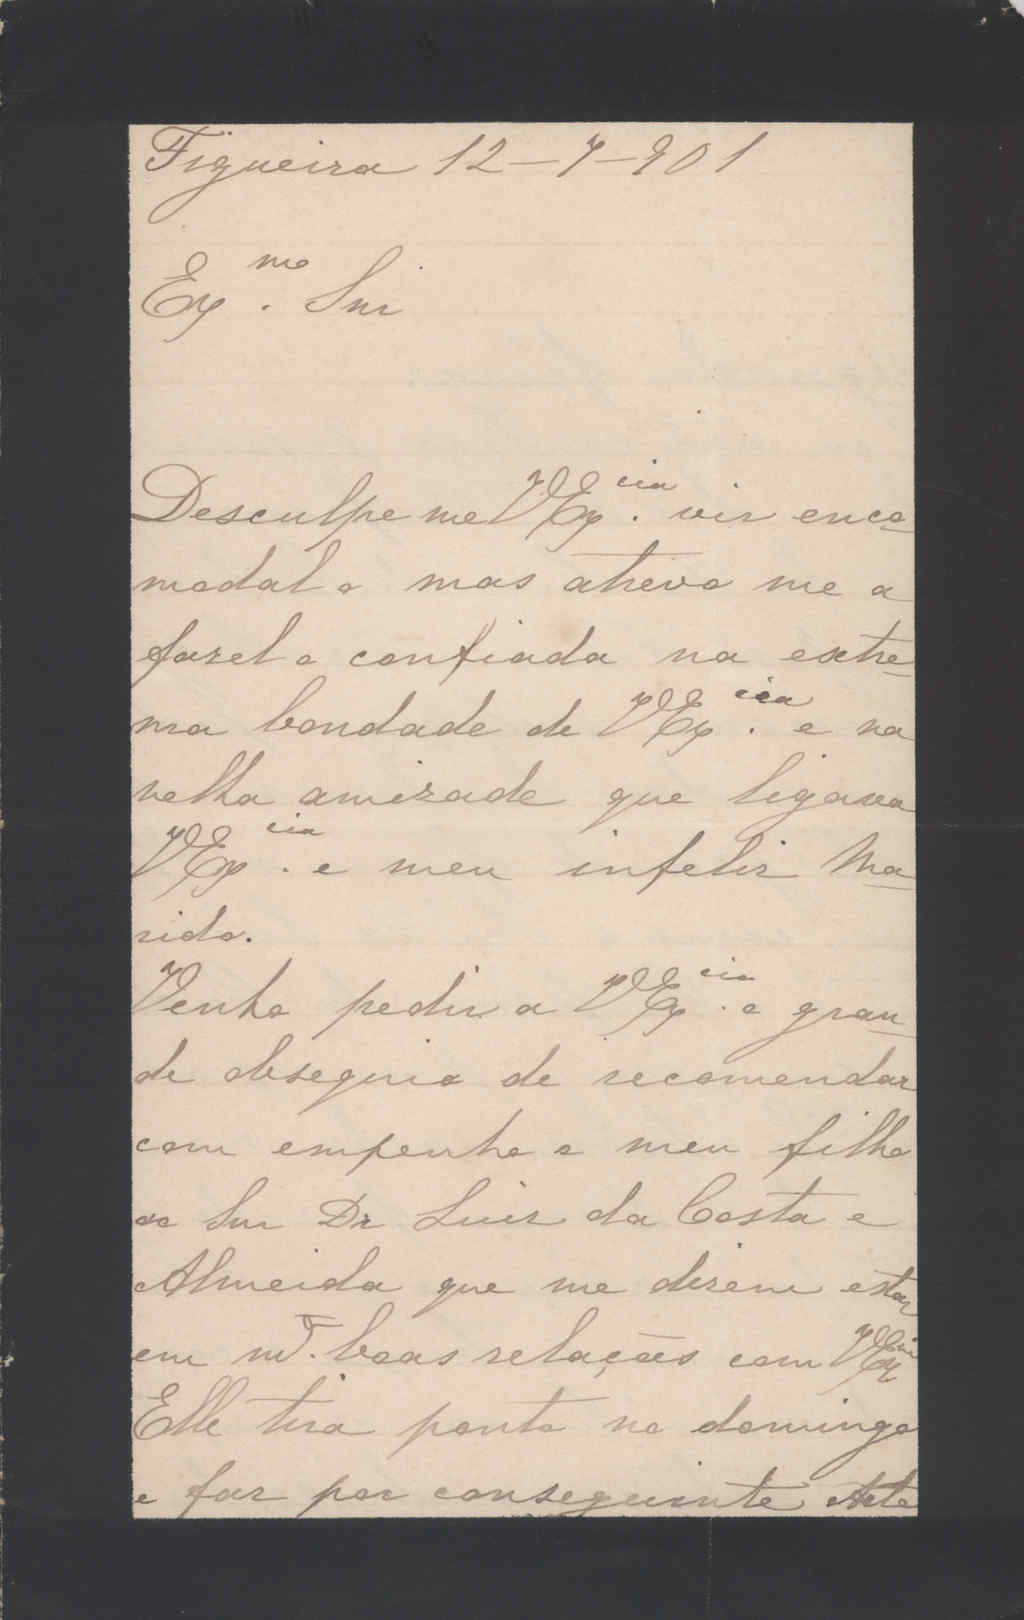 Figueira 12-7-901
Ex.mo Snr
Desculpe me VEx.cia vir enco-
modalo mas atrevo me a
fazelo confiada na extre-
ma bondade de VEx.cia e na
velha amizade que ligava
VEx.cia e meu infeliz Ma-
rido.
Venho pedir a VEx.cia o gran-
de obsequio de recomendar
com empenho o meu filho
ao Snr Dr Luiz da Costa e
Almeida que me dizem estar
em m.to boas relações com VExcia
Elle tira ponto no domingo
e faz por conseguinte Acto